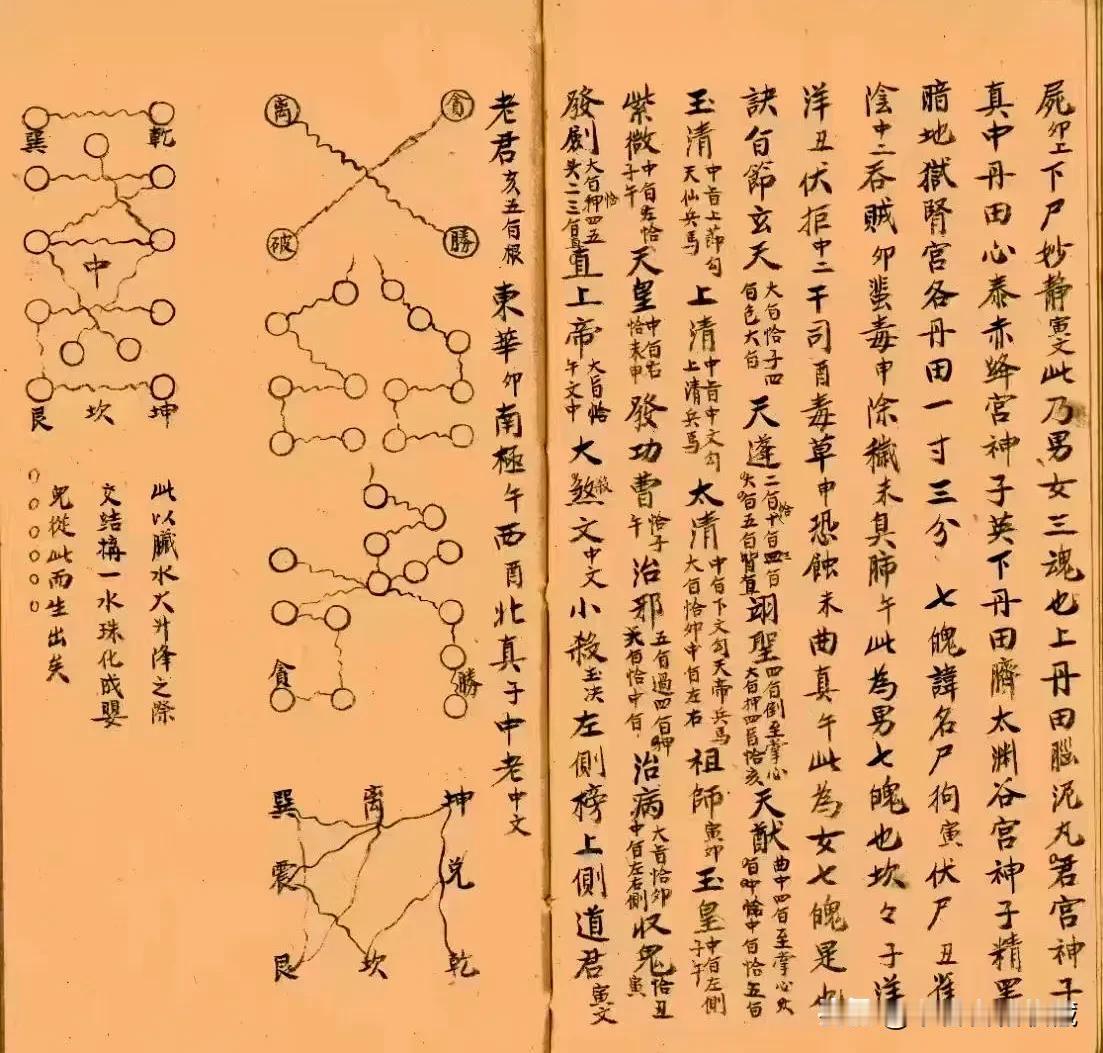 屍卯上下尸妙静寅文此乃男女三魂也上丹田腦泥丸君宮神子
真中丹田心泰赤絳宮神子英下丹田臍太渊谷宮神子精罡
暗地獄腎宮各丹田一寸三分 七魄諱名尸狗寅伏尸丑雀
陰中二吞賊卯蜚毒申除穢未臭肺午此為男七魄也坎々子洋
洋丑伏拒中二干司酉毒草申恐蝕未曲真午此為女七魄是也
訣百節玄天大百恰子四百色大百天蓬翊聖四百倒至掌心大百押四百恰亥天猷
玉清中百上節勾天仙兵馬上清中百中文勾上清兵馬太清中百下文勾天帝兵馬大百恰卯中百左右祖師寅卯玉皇中百左側子午
紫微中百左恰子午天皇中百右恰未申發功曹恰子午治邪五百過四百押大百恰中百治病大百恰卯中百左右側収鬼恰丑寅
發劇大百押四五恰大二三百直上帝大百恰午文中大煞文中文小殺玉决左側榜上側道君寅文
老君亥五百根東華卯南極午西酉北真子中老中文
离 貪
破 勝
貪 勝
巽 离 坤
震 兌
艮 坎 乾
巽 乾
中
艮 坎 坤
此以臟水火升降之際
交結構一水珠化成嬰
兒從此而生出矣